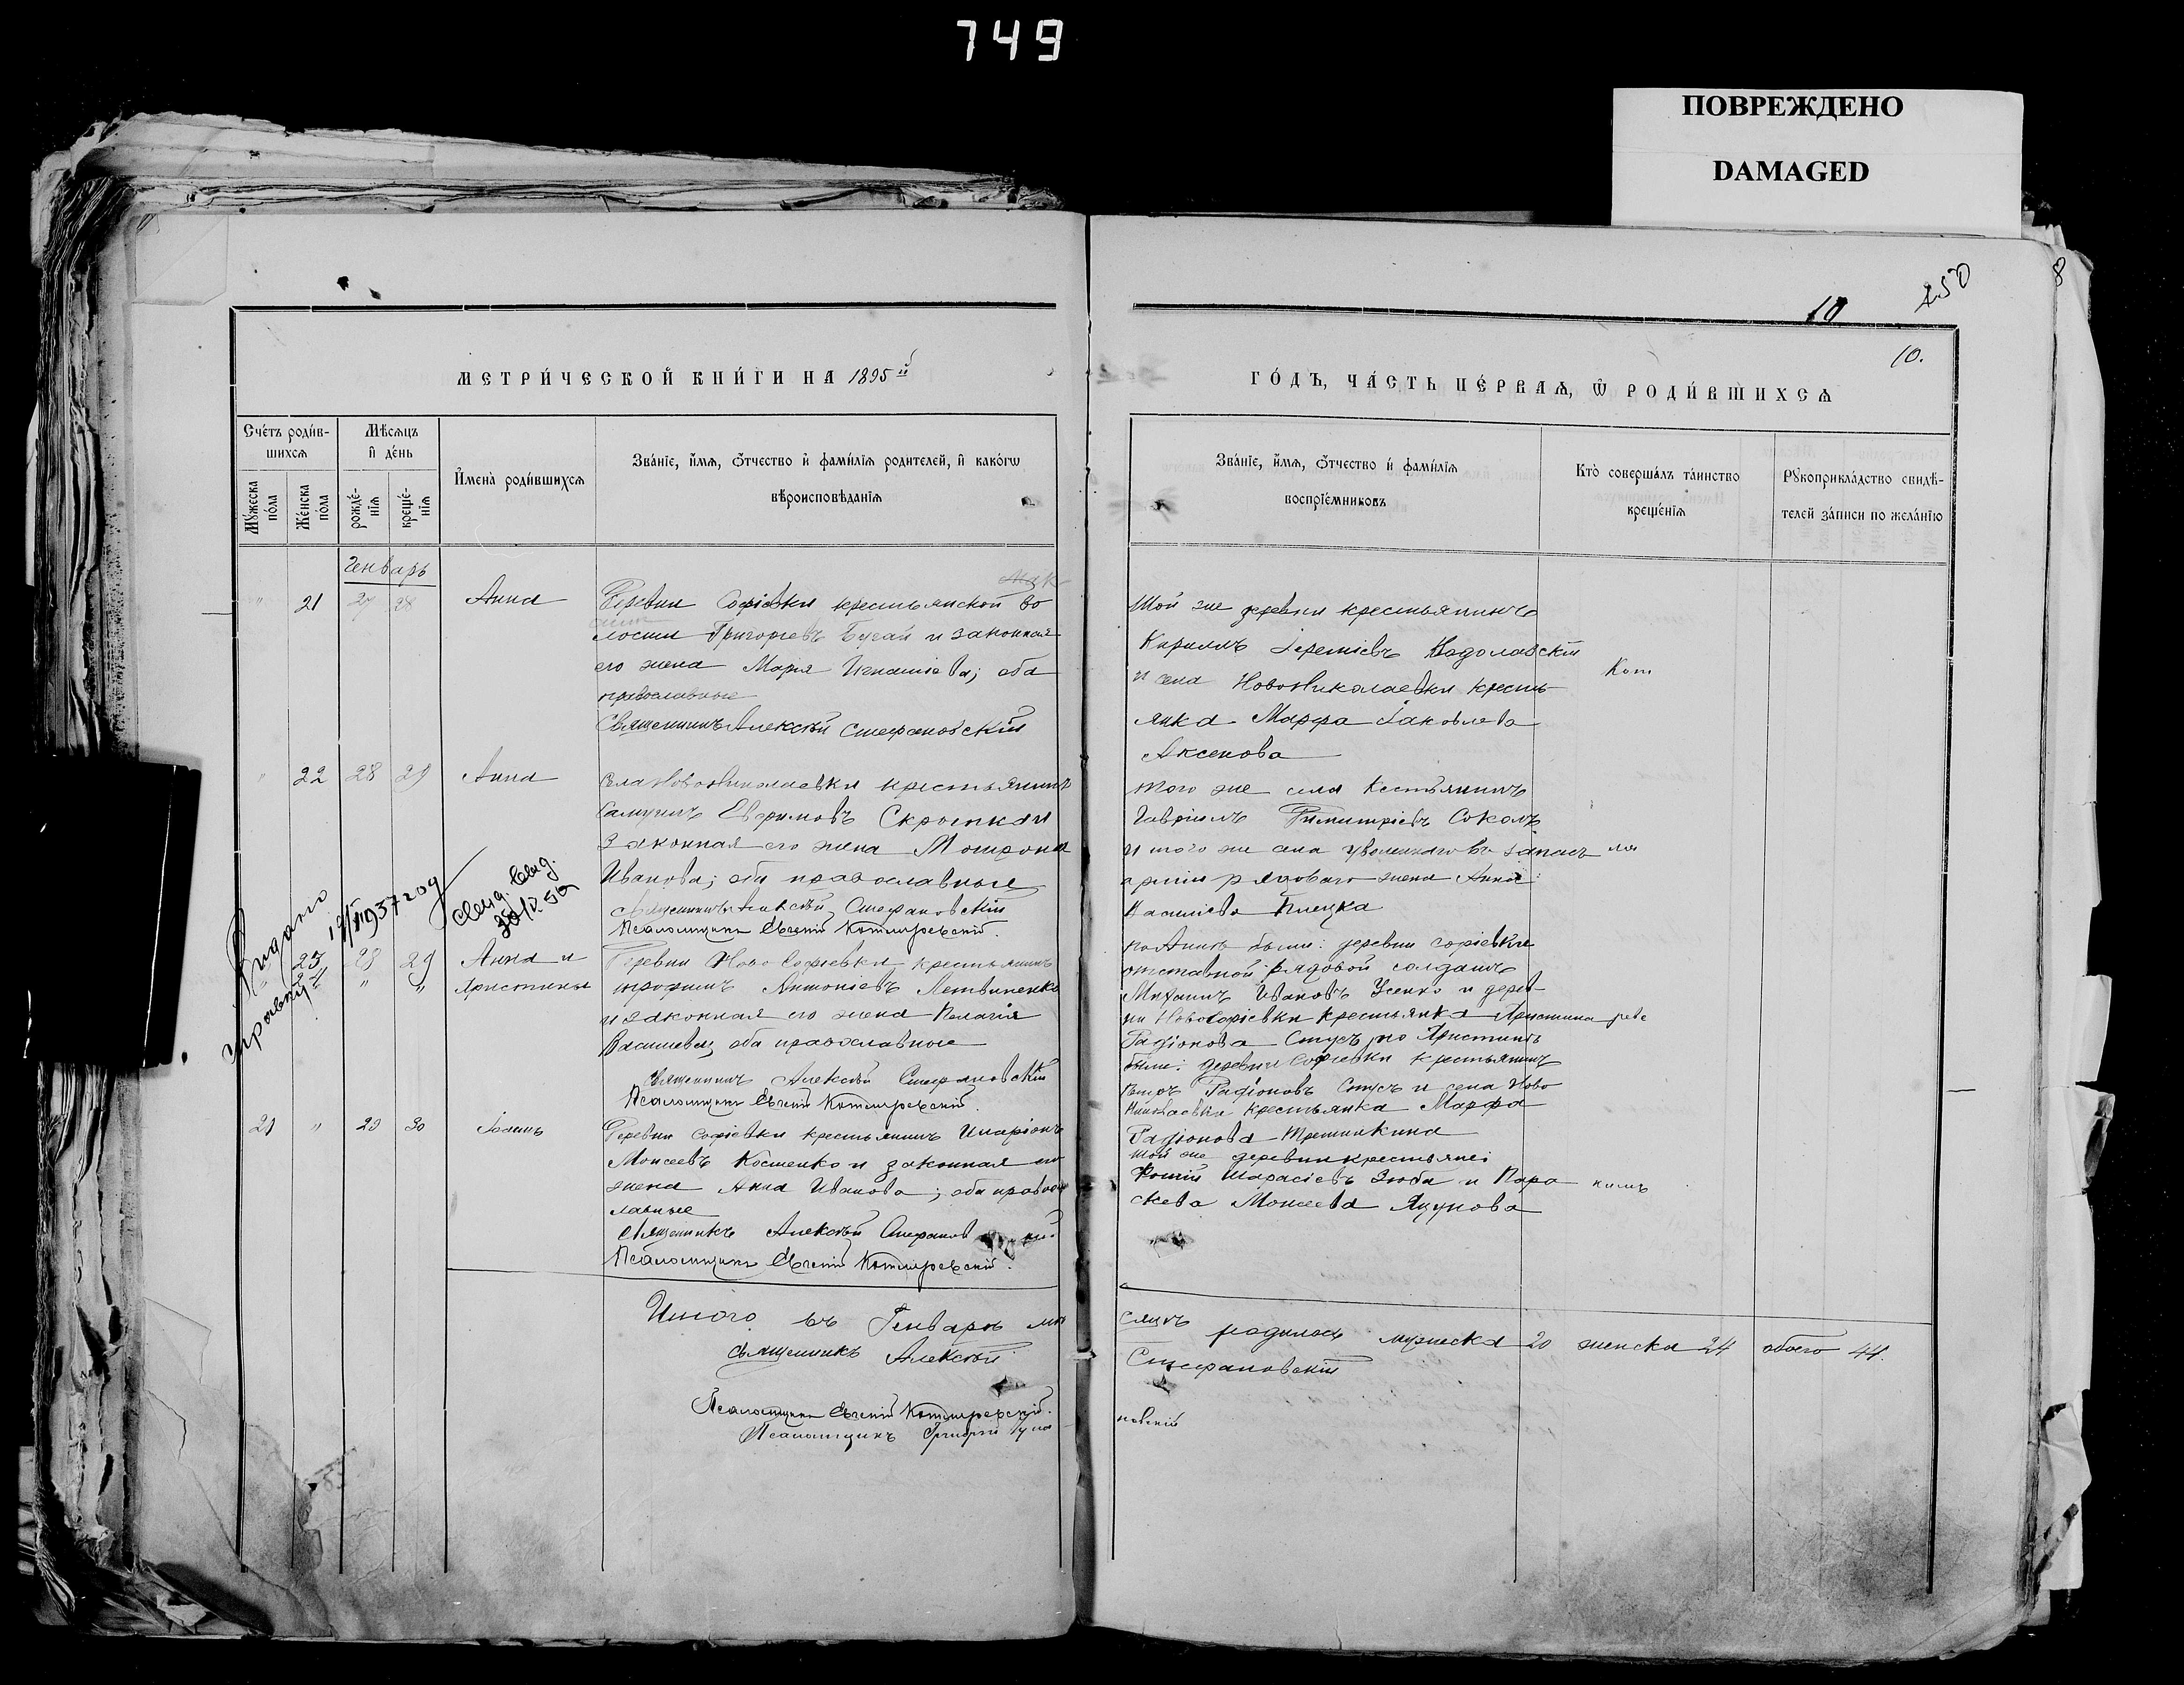 749
ПОВРЕЖДЕНО
DAMAGED
250
8
10
10.
МЕТРИ́ЧЕСКОЙ КНИ́ГИ НА 1895 й
ГО́ДЪ, ЧА́СТЬ ПЕ́РВАѦ, Ѿ РОДИ́ВШИХСѦ
Сче́тъ роди́в-
шихсѧ
Мꙋ́жеска по́ла
Же́нска по́ла
Мѣ́сѧцъ
и҆ де́нь
рожде́-
нїѧ
креще́-
нїѧ
И҆мена̀ роди́вшихсѧ
Зва́нїе, и҆́мѧ, ѻ҆́тчество и҆ фами́лїѧ родителей, и҆ како́гѡ
вѣроисповѣ́данїѧ
Зва́нїе, и҆́мѧ, ѻ҆́тчество и҆ фами́лїѧ
воспрїе́мниковъ
Кто̀ соверша́лъ та́инство
креще́нїѧ
Рꙋкоприкла́дство свидѣ́-
телей за́писи по жела́нїю
Генварь
" 21 27 28 Анна
Деревни Софіевки крестьянской во
лости Григорьевъ Бугай и законная
его жена Марія Игнатіева; оба
православные
Священникъ Алексѣй Стефановскій
Той же деревни крестьянинъ
Кириллъ Іереміевъ Надолавскій
и села Новониколаевки кресть
янка Марфа Іаковлева
Аксенова
Кот
" 22 28 29 Анна
Села Новониколаевки крестьянинъ
Самуилъ Евфимовъ Скрыпка и
законная его жена Мотрона
Иванова; оба православные
Священникъ Алексѣй Стефановскій
Псаломщикъ Евгеній Котляревскій.
того же села Кестьянинъ
Гавріилъ Димитріевъ Соколъ
и того же села уволеннаго въ запасъ
арміи рядового жена Анна
Василіева
ля
Выдано
справку
1937 год
23 28 29 Анна и
24 " " Христина
Деревни Ново Софіевки крестьянинъ
Трофимъ Антоніевъ Летвиненко
и законная его жена Пелагія
Василіева, оба православные
Священникъ Алексѣй Стефановскій
Псаломщикъ Евгеній Котляревскій.
по Аннѣ были: деревни Софіевки
отставной рядовой солдатъ
Михаилъ Ивановъ Усенко и дерев
ни Новософіевки крестьянка Христина
Радіонова Стусъ, по Христинѣ
были: деревни Софіевки крестьянинъ
Петръ Радіоновъ Стусъ и села Ново
Николаевки крестьянка Марфа
Радіонова
ревс
21 " 29 30 Іоаннъ
Деревни Софіевки крестьянинъ Иларіонъ
Моисеевъ Костенко и законная его
жена Анна Иванова; оба правос
лавные
Священникъ Алексѣй Стефановскій
Псаломщикъ Евгеній Котляревскій.
той же деревни крестьяне:
Фотій Тарасіевъ Зюба и Пара
скева Моисеева Яцунова
кимъ
Итого въ Генварѣ мѣ
сяцѣ родилось мужеска 20 женска 24 обоего 44.
Священникъ Алексѣй
Стефановскій
Псаломщикъ Евгеній Котляревскій.
Псаломщикъ Григорій
новскій